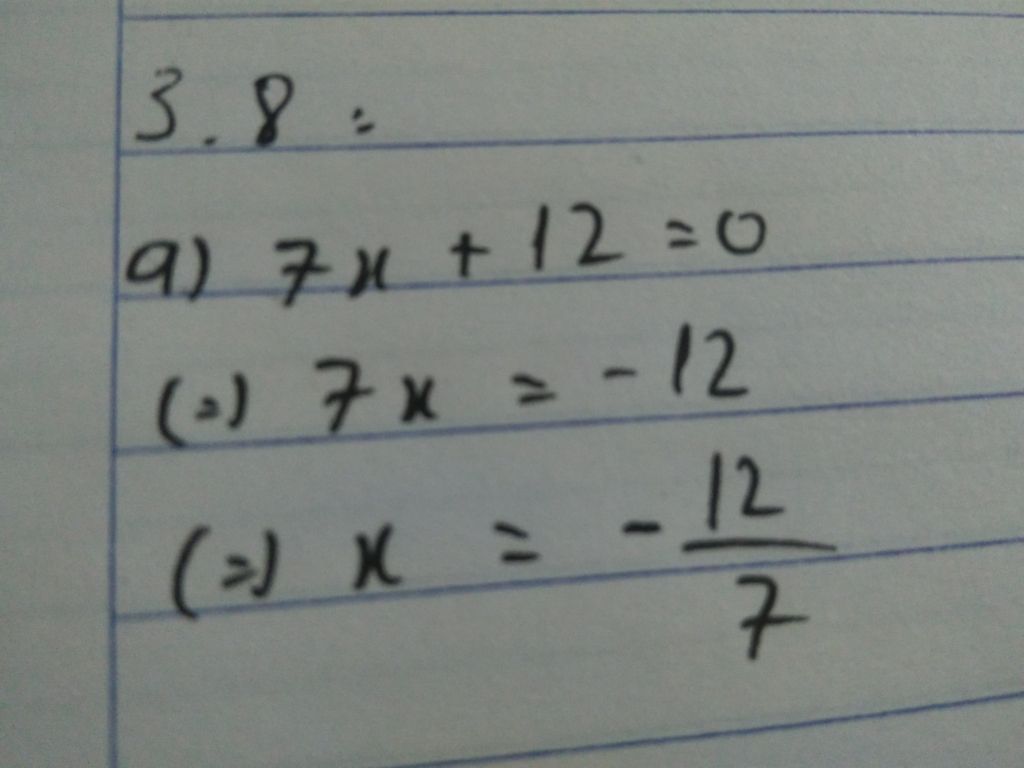 3.8 :
a) 7x + 12 = 0
(=) 7x = - 12
(=) x = - 12/7